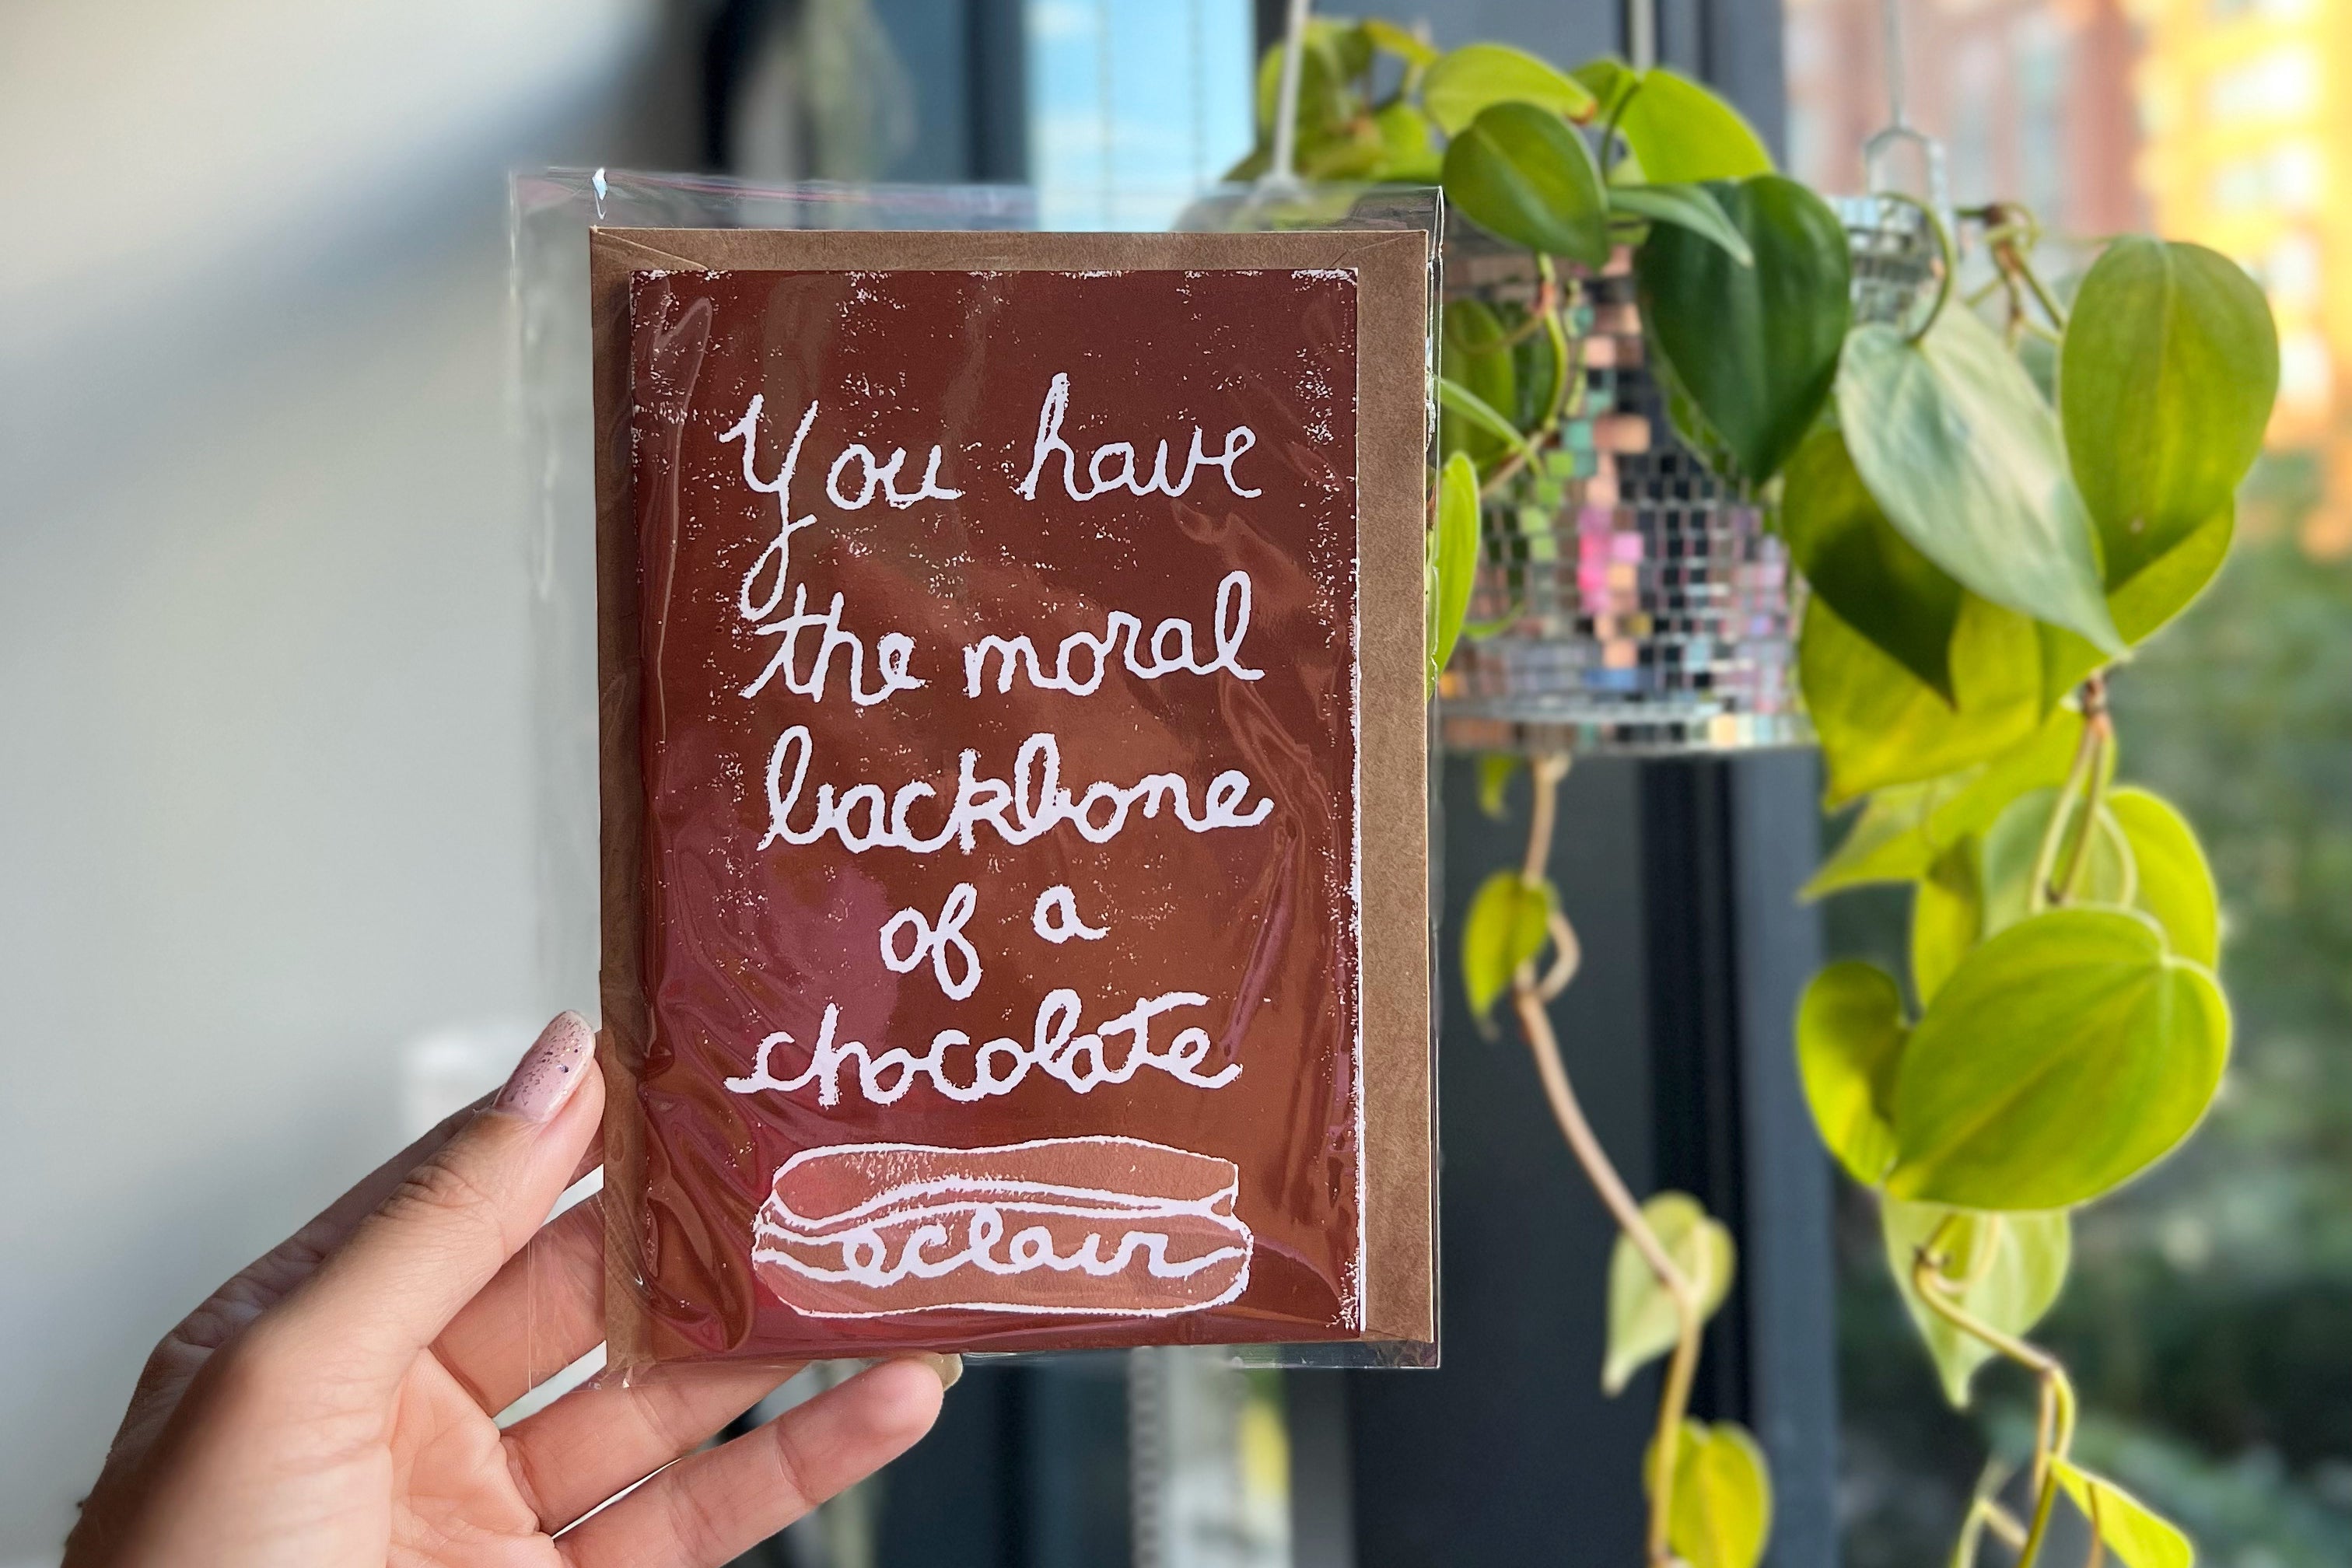 You have
the moral
backbone
of a
chocolate
eclair